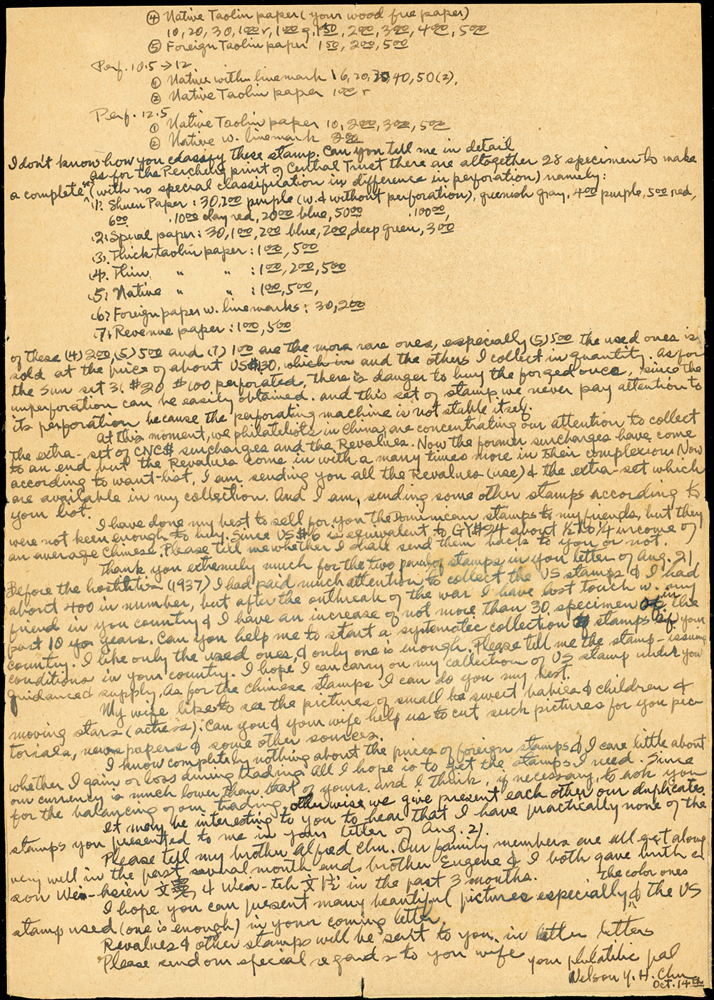 ④ Native Taolin paper (your wood free paper)
10, 20, 30, 1.00 r, 1.00 g, 1.50, 2.00, 3.00, 4.00, 5.00
⑤ Foreign Taolin paper 1.50, 2.00, 5.00
Perf. 10.5 → 12
① Native with linemark 16, 20, 30, 40, 50 (2),
② Native Taolin paper 1.00 r
Perf. 12.5
① Native Taolin paper 10, 2.00, 3.00, 5.00
② Native w. linemark 2.00
I don't know how you classify these stamp. Can you tell me in detail
As for the Percheng print of Central Trust there are altogether 28 specimen to make
a complete set (with no special classification in difference in perforation) namely:
1. Shuen Paper : 30, 2.00 purple (w. & without perforation), greenish gray, 4.00 purple, 5.00 red,
6.00 10.00 clay red, 20.00 blue, 50.00 100.00,
2. Spiral paper : 30, 1.00, 2.00 blue, 2.00, deep green, 3.00
3. Thick taolin paper : 1.00, 5.00
4. Thin " " : 1.00, 2.00, 5.00
5. Native " " : 1.00, 5.00,
6. Foreign paper w. linemarks : 30, 2.00
7. Revenue paper : 1.00, 5.00
of these (4) 2.00, (5) 5.00 and (7) 1.00 are the more rare ones, especially (5) 5.00 the used ones is
sold at the price of about US$30, which in and the others I collect in quantity. As for
the Sun set 31 $20 $100 perforated, there is danger to buy the forged once, since the
imperforation can be easily obtained. And this set of stamp we never pay attention to
its perforation because the perforating machine is not stable itself.
At this moment, we philatelists in China are concentrating our attention to collect
the extra-set of CNC$ surcharges and the Revalues. Now the former surcharges have come
to an end but the Revalues come in with a many times more in their complexion. Now
according to want-list, I am sending you all the Revalues (use) & the extra-set which
are available in my collection. And I am sending some other stamps according to
your list.
I have done my best to sell for you the Dominican stamps to my friends, but they
were not keen enough to buy. Since US$6 is equivalent to GY$24 about ½ to ¼ income of
an average Chinese. Please tell me whether I shall send them back to you or not.
Thank you extremely much for the two pairs of stamps in your letter of Aug. 21
Before the hostilities (1937) I had paid much attention to collect the US stamps & I had
about 400 in number, but after the outbreak of the war I have lost touch w. my
friend in you country & I have an increase of not more than 30 specimen in the
past 10 years. Can you help me to start a systematic collection of stamps of you
country. I like only the used ones & only one is enough. Please tell me the stamp-issuing
conditions in your country. I hope I can carry on my collection of US stamp under you
guidance & supply. As for the Chinese stamps I can do you my best.
My wife likes to see the pictures of small sweet babies & children &
moving stars (actress). Can you & your wife help us to cut such pictures for you pic-
torials, newspapers & some other sources.
I know completely nothing about the prices of foreign stamps & I care little about
whether I gain or loss during trading. All I hope is to get the stamps I need. Since
our currency is much lower than that of yours. And I think, if necessary, to ask you
for the balancing of our trading, otherwise we give present each other our duplicates.
It may be interesting to you to hear that I have practically none of the
stamps you presented to me in your letter of Aug. 21.
Please tell my brother Alfred Chu. Our family members are all get along
very well in the past several month and brother Eugene & I both gave birth a
son Wen-hsien & Wen-teh in the past 3 months.
the color ones
I hope you can present many beautiful pictures especially & the US
stamp used (one is enough) in your coming letter.
Revalues & other stamps will be sent to you in latter letters
Please send our special regards to you wife
your philatelic pal
Nelson Y. H. Chu
Oct. 14th